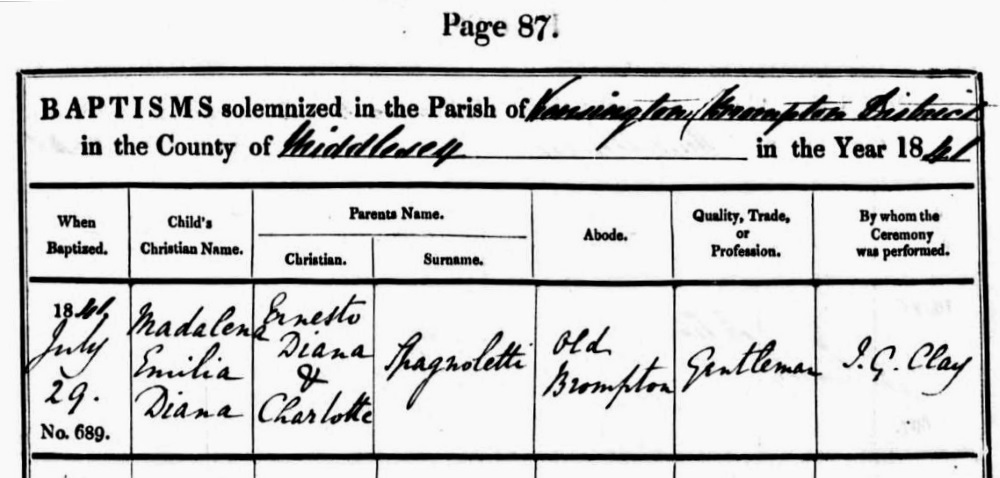 Page 87.
BAPTISMS solemnized in the Parish of Kensington / Brompton District
in the County of Middlesex in the Year 1841
When
Baptized.
Child's
Christian Name.
Parents Name.
Christian.
Surname.
Abode.
Quality, Trade,
or
Profession.
By whom the
Ceremony
was performed.
1841,
July
29.
No. 689.
Madalena
Emilia
Diana
Ernesto
Diana
&
Charlotte
Spagnoletti
Old
Brompton
Gentleman
J. G. Clay